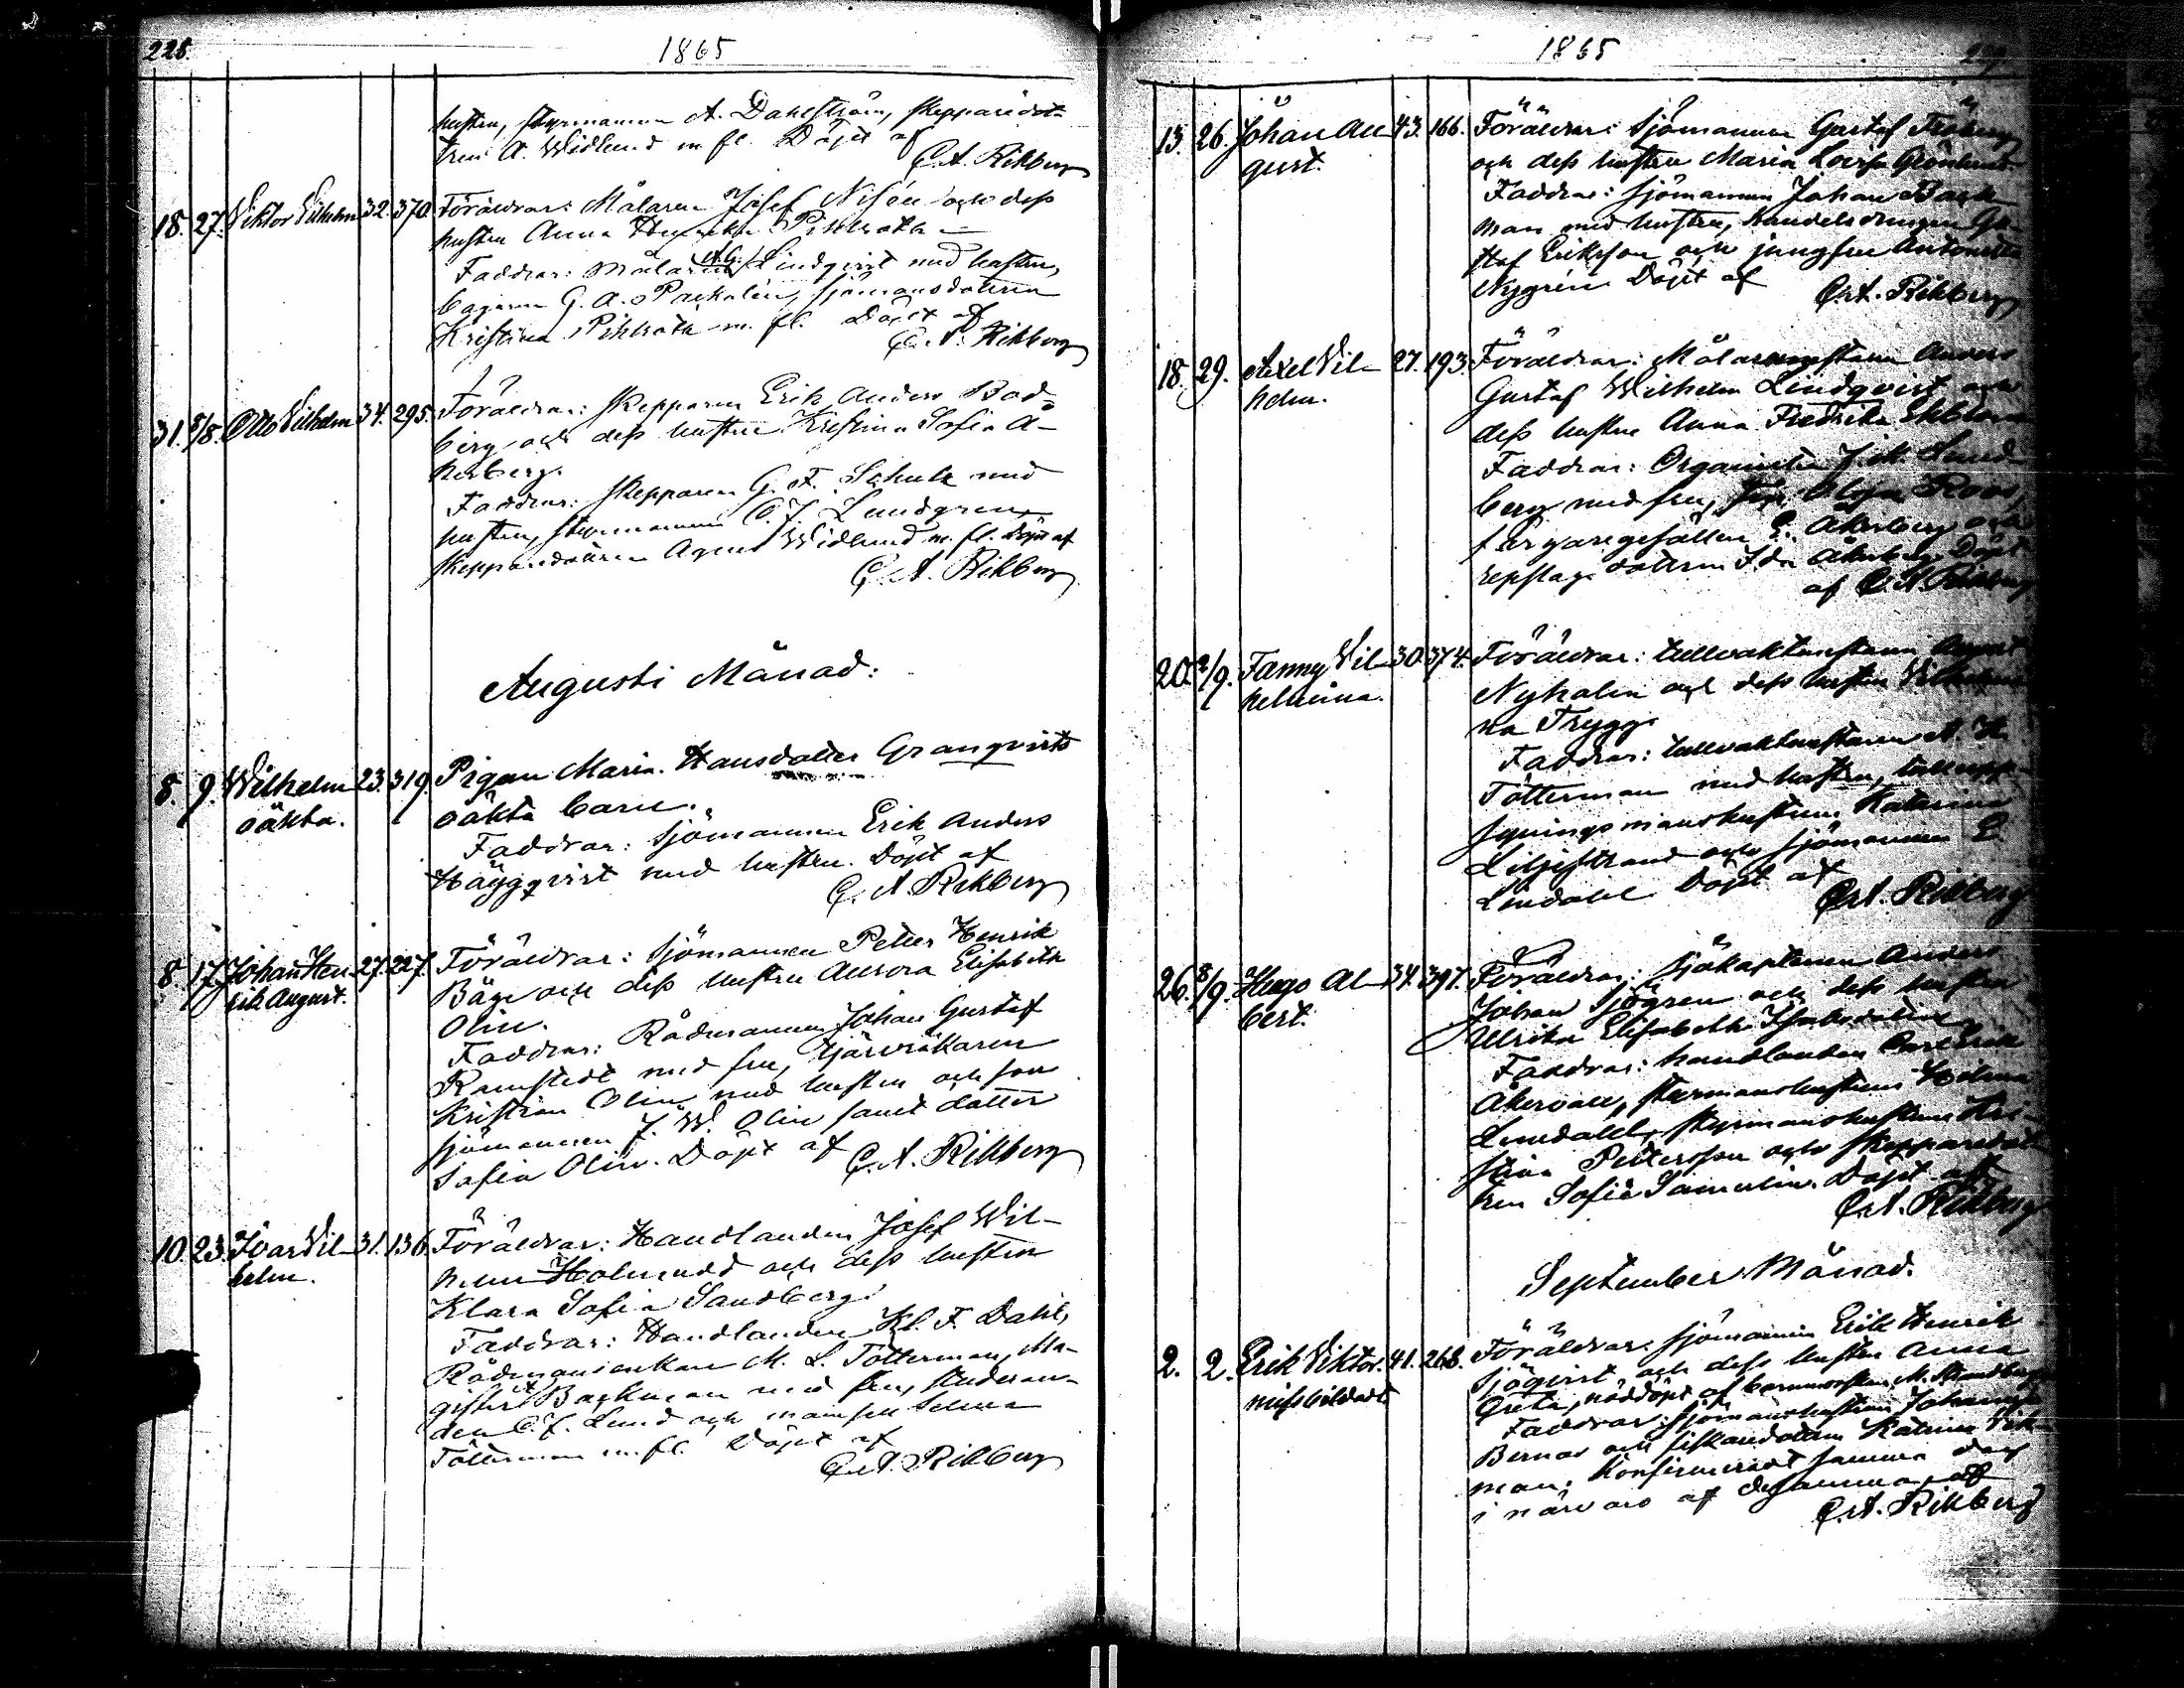 228.
1865
hustru, styrmannen A. Dahlström, skepparedot-
tren A. Widlund m fl. Döpt af
C. A. Rikberg
18. 27. Viktor Vilhelm 32. 370. Föräldrar: Målaren Josef Nisén och dess
hustru Anna
Faddrar: Målaren A.G. Lindqvist med hustru,
G. A. sjömansdottren
Kristina m. fl. Döpt af
C. A. Rikberg
31. 8/8. Otto Vilhelm 34. 295. Föräldrar: Skepparen Erik Anders Bod-
berg och dess hustru Kristina Sofia Å-
kerberg.
Faddrar: Skepparen G. F. Schulz med
hustru, styrmannen C. J. Lundgren,
skepparedottren Agnes Widlund m. fl. Döpt af
C. A. Rikberg
Augusti Månad:
8. 9. Wilhelm 23. 319. Pigan Maria Hansdotter Granqvists
oäkta. oäkta barn.
Faddrar: Sjömannen Erik Anders
Häggqvist med hustru. Döpt af
C. A. Rikberg
8. 17. Johan Hen- 27. 227. Föräldrar: Sjömannen Petter Henrik
rik August. Båge och dess hustru Aurora Elisabeth
Olin.
Faddrar: Rådmannen Johan Gustaf
Ramstedt med fru, tjärvräkaren
Kristian Olin med hustru och son
sjömannen J. W. Olin samt dotter
Sofia Olin. Döpt af
C. A. Rikberg
10. 23. Ivar Vil- 31. 136. Föräldrar: Handlanden Josef Wil-
helm. helm Holmudd och dess hustru
Klara Sofia Sandberg.
Faddrar: Handlanden Kl. F. Dahl,
Rådmansenkan M. L. Tötterman, Ma-
gister Backman med fru, studeran-
den C. J. Lund och mamsell Selma
Tötterman m. fl. Döpt af
C. A. Rikberg
1865
229.
13. 26. Johan Au- 43. 166. Föräldrar: Sjömannen Gustaf
gust. och dess hustru Maria Lovisa Grönlund.
Faddrar: Sjömannen Johan Back-
man med hustru, handelsdrengen Gu-
staf Eriksson och jungfru Antonetta
Nygrén Döpt af
C. A. Rikberg
18. 29. Axel Vil- 27. 193. Föräldrar: Målaremästaren Anders
helm. Gustaf Wilhelm Lindqvist och
dess hustru Anna Fredrika Ekblom
Faddrar: Organisten J. M. Sund-
berg med fru, Olga Roos,
färgaregesällen E. Åkerberg och
repslag. dottren Ida Åkerberg. Döpt
af C. A. Rikberg
20. 2/9. Fanny Vil- 30. 374. Föräldrar: tullvaktmästaren August
helmina. Nyholm och dess hustru Vilhelmi-
na Trygg.
Faddrar: tullvaktmästaren A. H.
Tötterman med hustru, tullupp-
syningsmanshustrun Katarina
Liljestrand och sjömannen E.
Lindahl Döpt af
C. A. Rikberg
26. 8/9. Hugo Al- 34. 397. Föräldrar: Sjökaptenen Anders
bert. Johan Sjögren och dess hustru
Ulrika Elisabeth
Faddrar: handlanden Carl Erik
Åkervall, styrmanshustrun Hilma
Lundahl, styrmanshustrun Kri-
stina Pettersson och skepparedot-
tren Sofia Döpt af
C. A. Rikberg
September Månad.
2. 2. Erik Viktor. 41. 268. Föräldrar: Sjömannen Erik Henrik
missbildadt Sjöqvist och dess hustru Anna
Greta, nöddöpt af barnmorskan M. Strandberg
Faddrar: Sjömanshustrun Johanna
Bernas och fiskaredottren Katrina Vik-
man. Konfirmeradt samma dag
i närvaro af desamma af
C. A. Rikberg